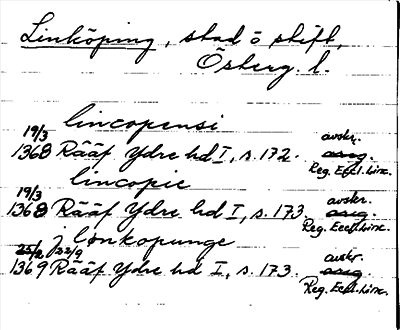 Linköping, stad o stift,
Österg. l.
lincopensi
19/3 avskr.
1368 Rääf Ydre hd I, s. 172. orig.
Reg. Eccl. Linc.
lincopie
19/3 avskr.
1368 Rääf Ydre hd I, s. 173. orig.
Reg. Eccl. Linc.
j lonkopunge
25/2 22/9 avskr.
1369 Rääf Ydre hd I, s. 173. orig.
Reg. Eccl. Linc.